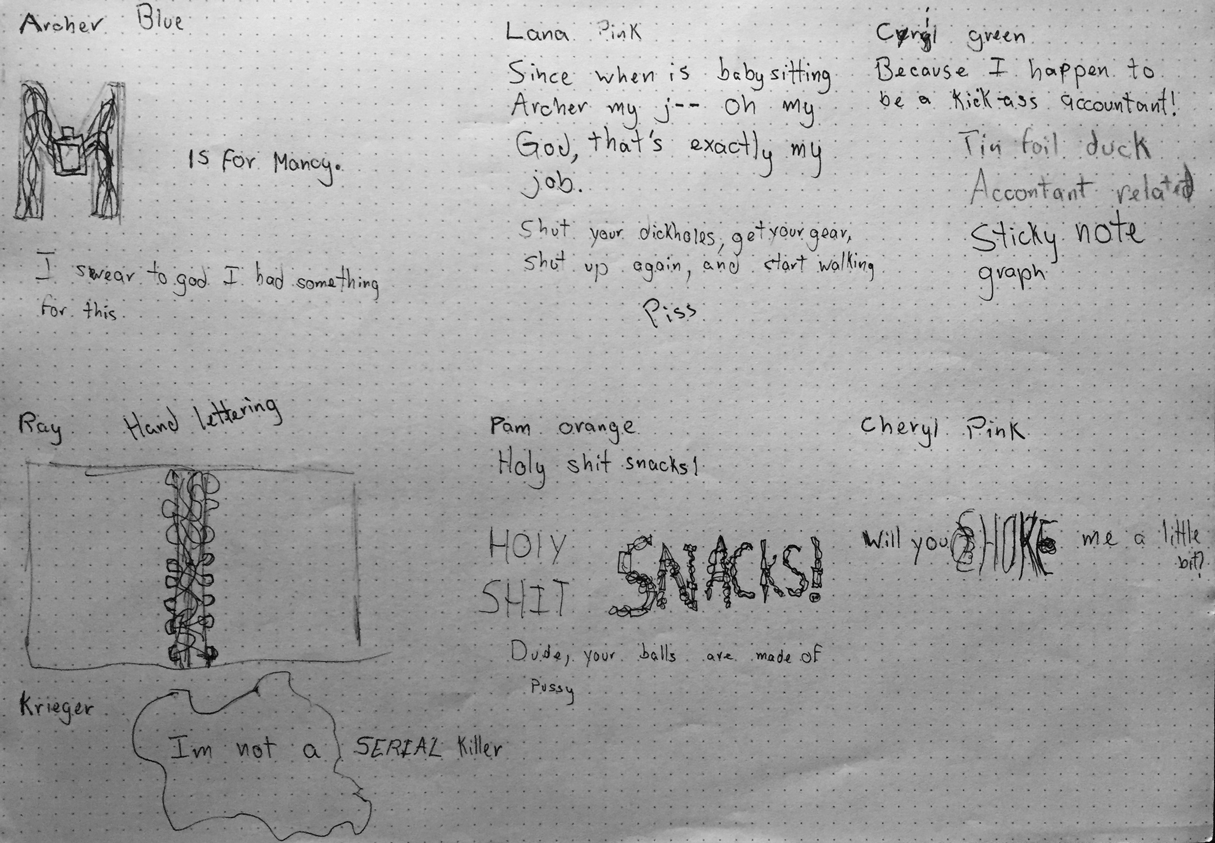 Archer Blue
M IS For Mancy.
I swear to god I had something
For this.
Lana Pink
Since when is babysitting
Archer my j-- Oh my
God, that's exactly my
job.
Shut your dickholes, get your gear,
shut up again, and start walking
Piss
Cyril green
Because I happen to
be a Kick-ass accountant!
Tin foil duck
Accontant related
Sticky note
graph
Ray Hand lettering
Pam orange
Holy shit snacks!
HOLY
SHIT SNACKS!
Dude, your balls are made of
Pussy
Cheryl Pink
Will you CHOKE me a little
bit?
Krieger
Im not a SERIAL Killer